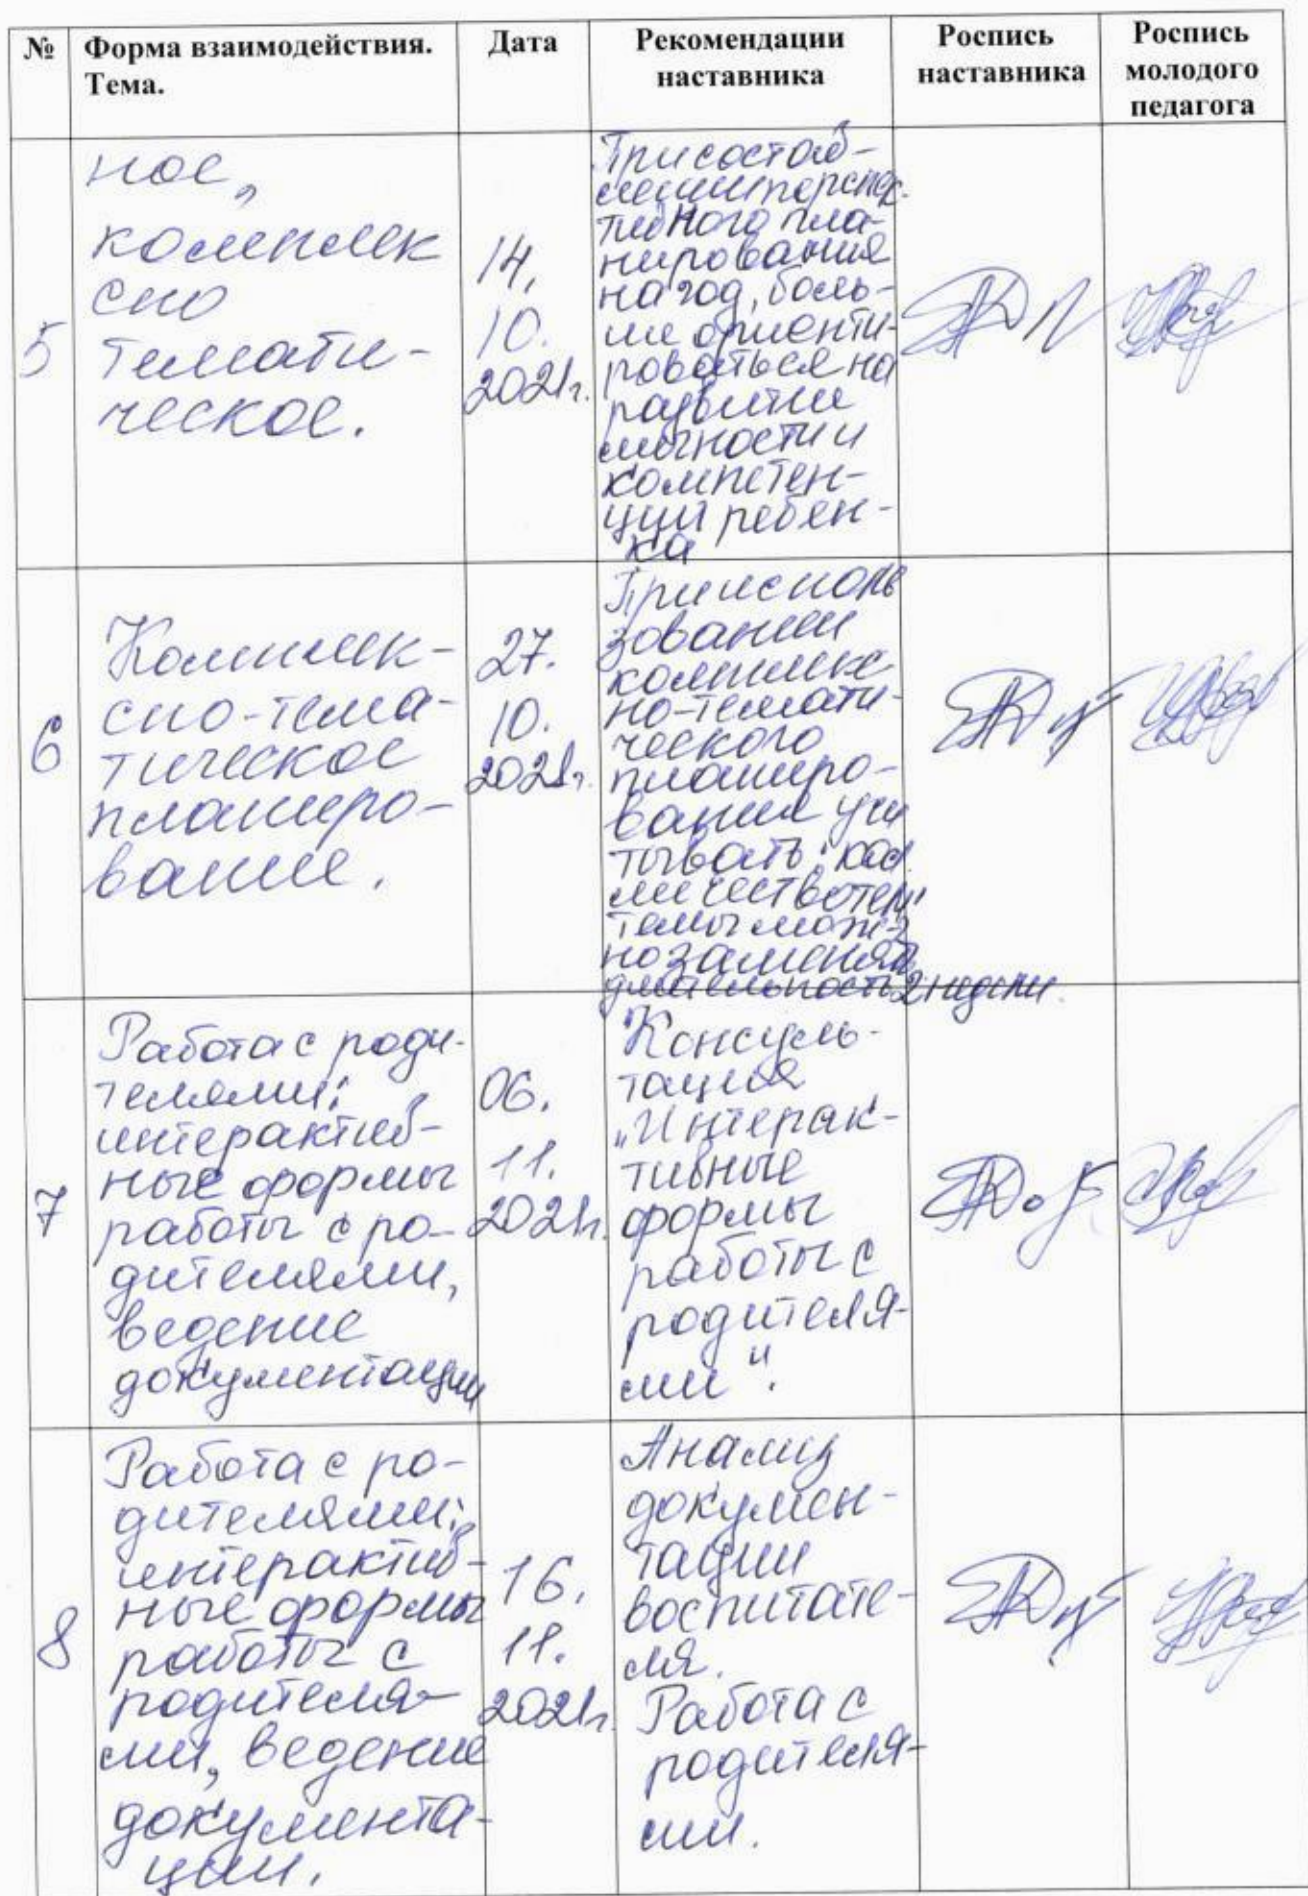 №
Форма взаимодействия.
Тема.
Дата
Рекомендации
наставника
Роспись
наставника
Роспись
молодого
педагога
5
ное,
комплек
сно
темати-
ческое.
14.
10.
2021г.
При состав-
лении перспек-
тивного пла-
нирования
на год, боль-
ше ориенти-
роваться на
развитие
личности и
компетен-
ций ребен-
ка
6
Комплек-
сно-тема-
тическое
планиро-
вание.
27.
10.
2021г.
При исполь
зовании
комплекс
но-темати-
ческого
планиро-
вания учи
тывать:
личество тем,
темы мож-
но заменять
длительность 2 недели.
7
Работа с роди-
телями:
интерактив-
ные формы
работы с ро-
дителями,
ведение
документации
06.
11.
2021г.
Консуль-
тация
"Интерак-
тивные
формы
работы с
родителя-
ми".
8
Работа с ро-
дителями;
интерактив-
ные формы
работы с
родителя-
ми, ведение
документа-
ции.
16.
11.
2021г.
Анализ
докумен-
тации
воспитате-
ля.
Работа с
родителя-
ми.